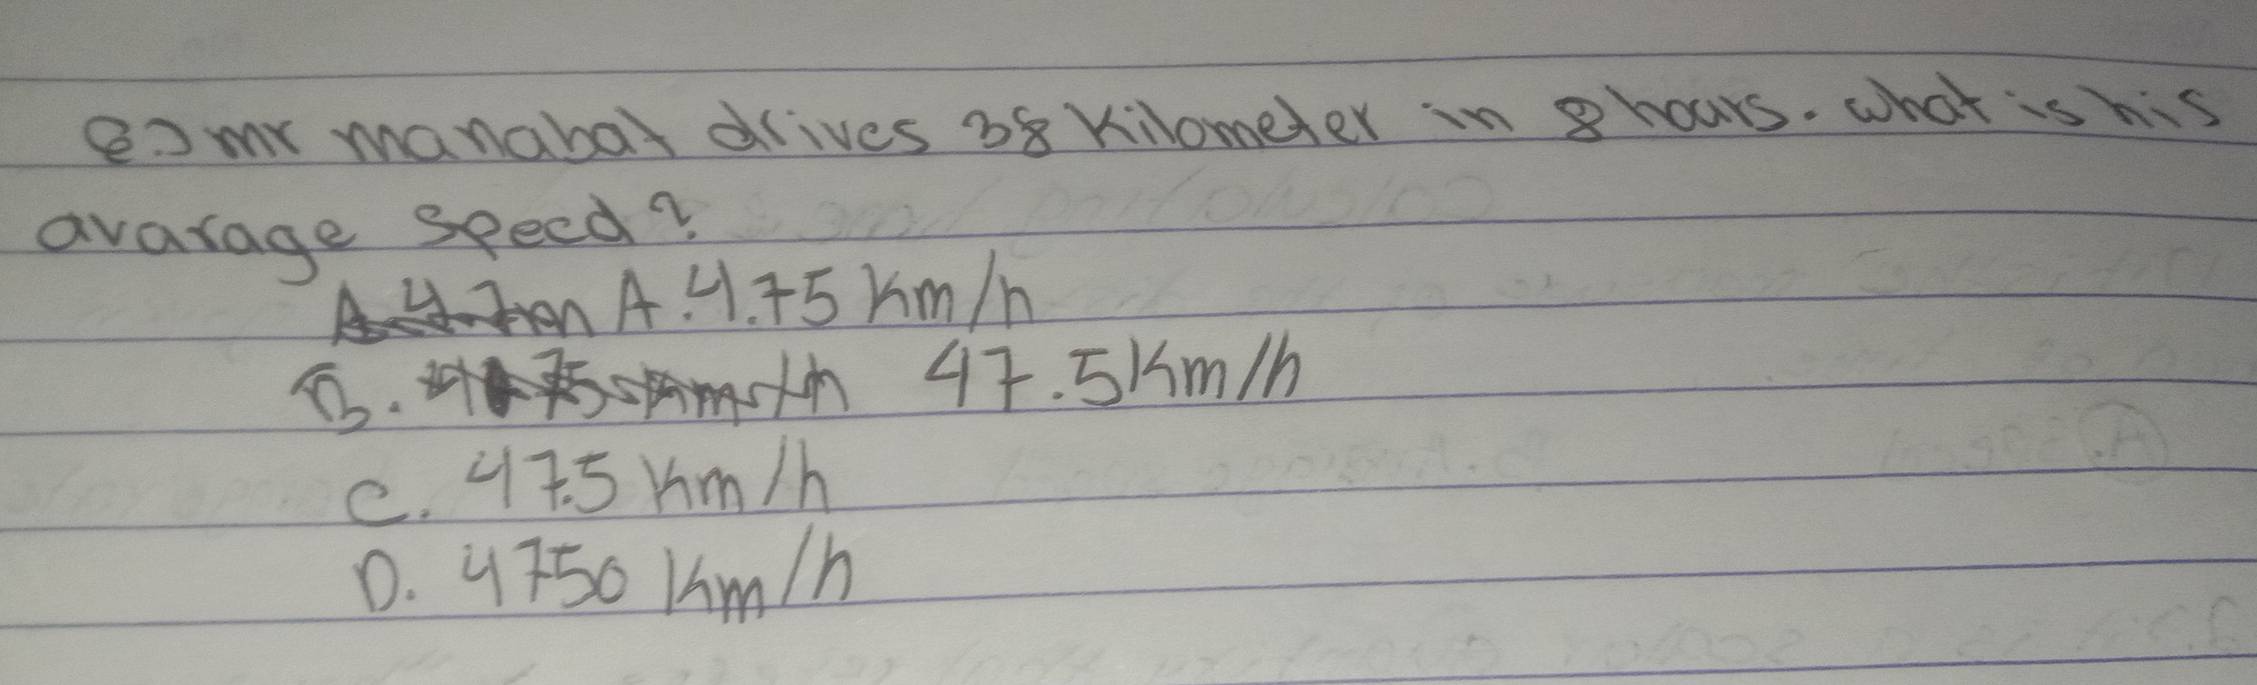 8.) mr manabat drives 38 Kilometer in 8 hours. what is his
avarage speed?
A. 4.75 Km/h
B. 47.5 Km/h
C. 47.5 Km/h
D. 4750 Km/h